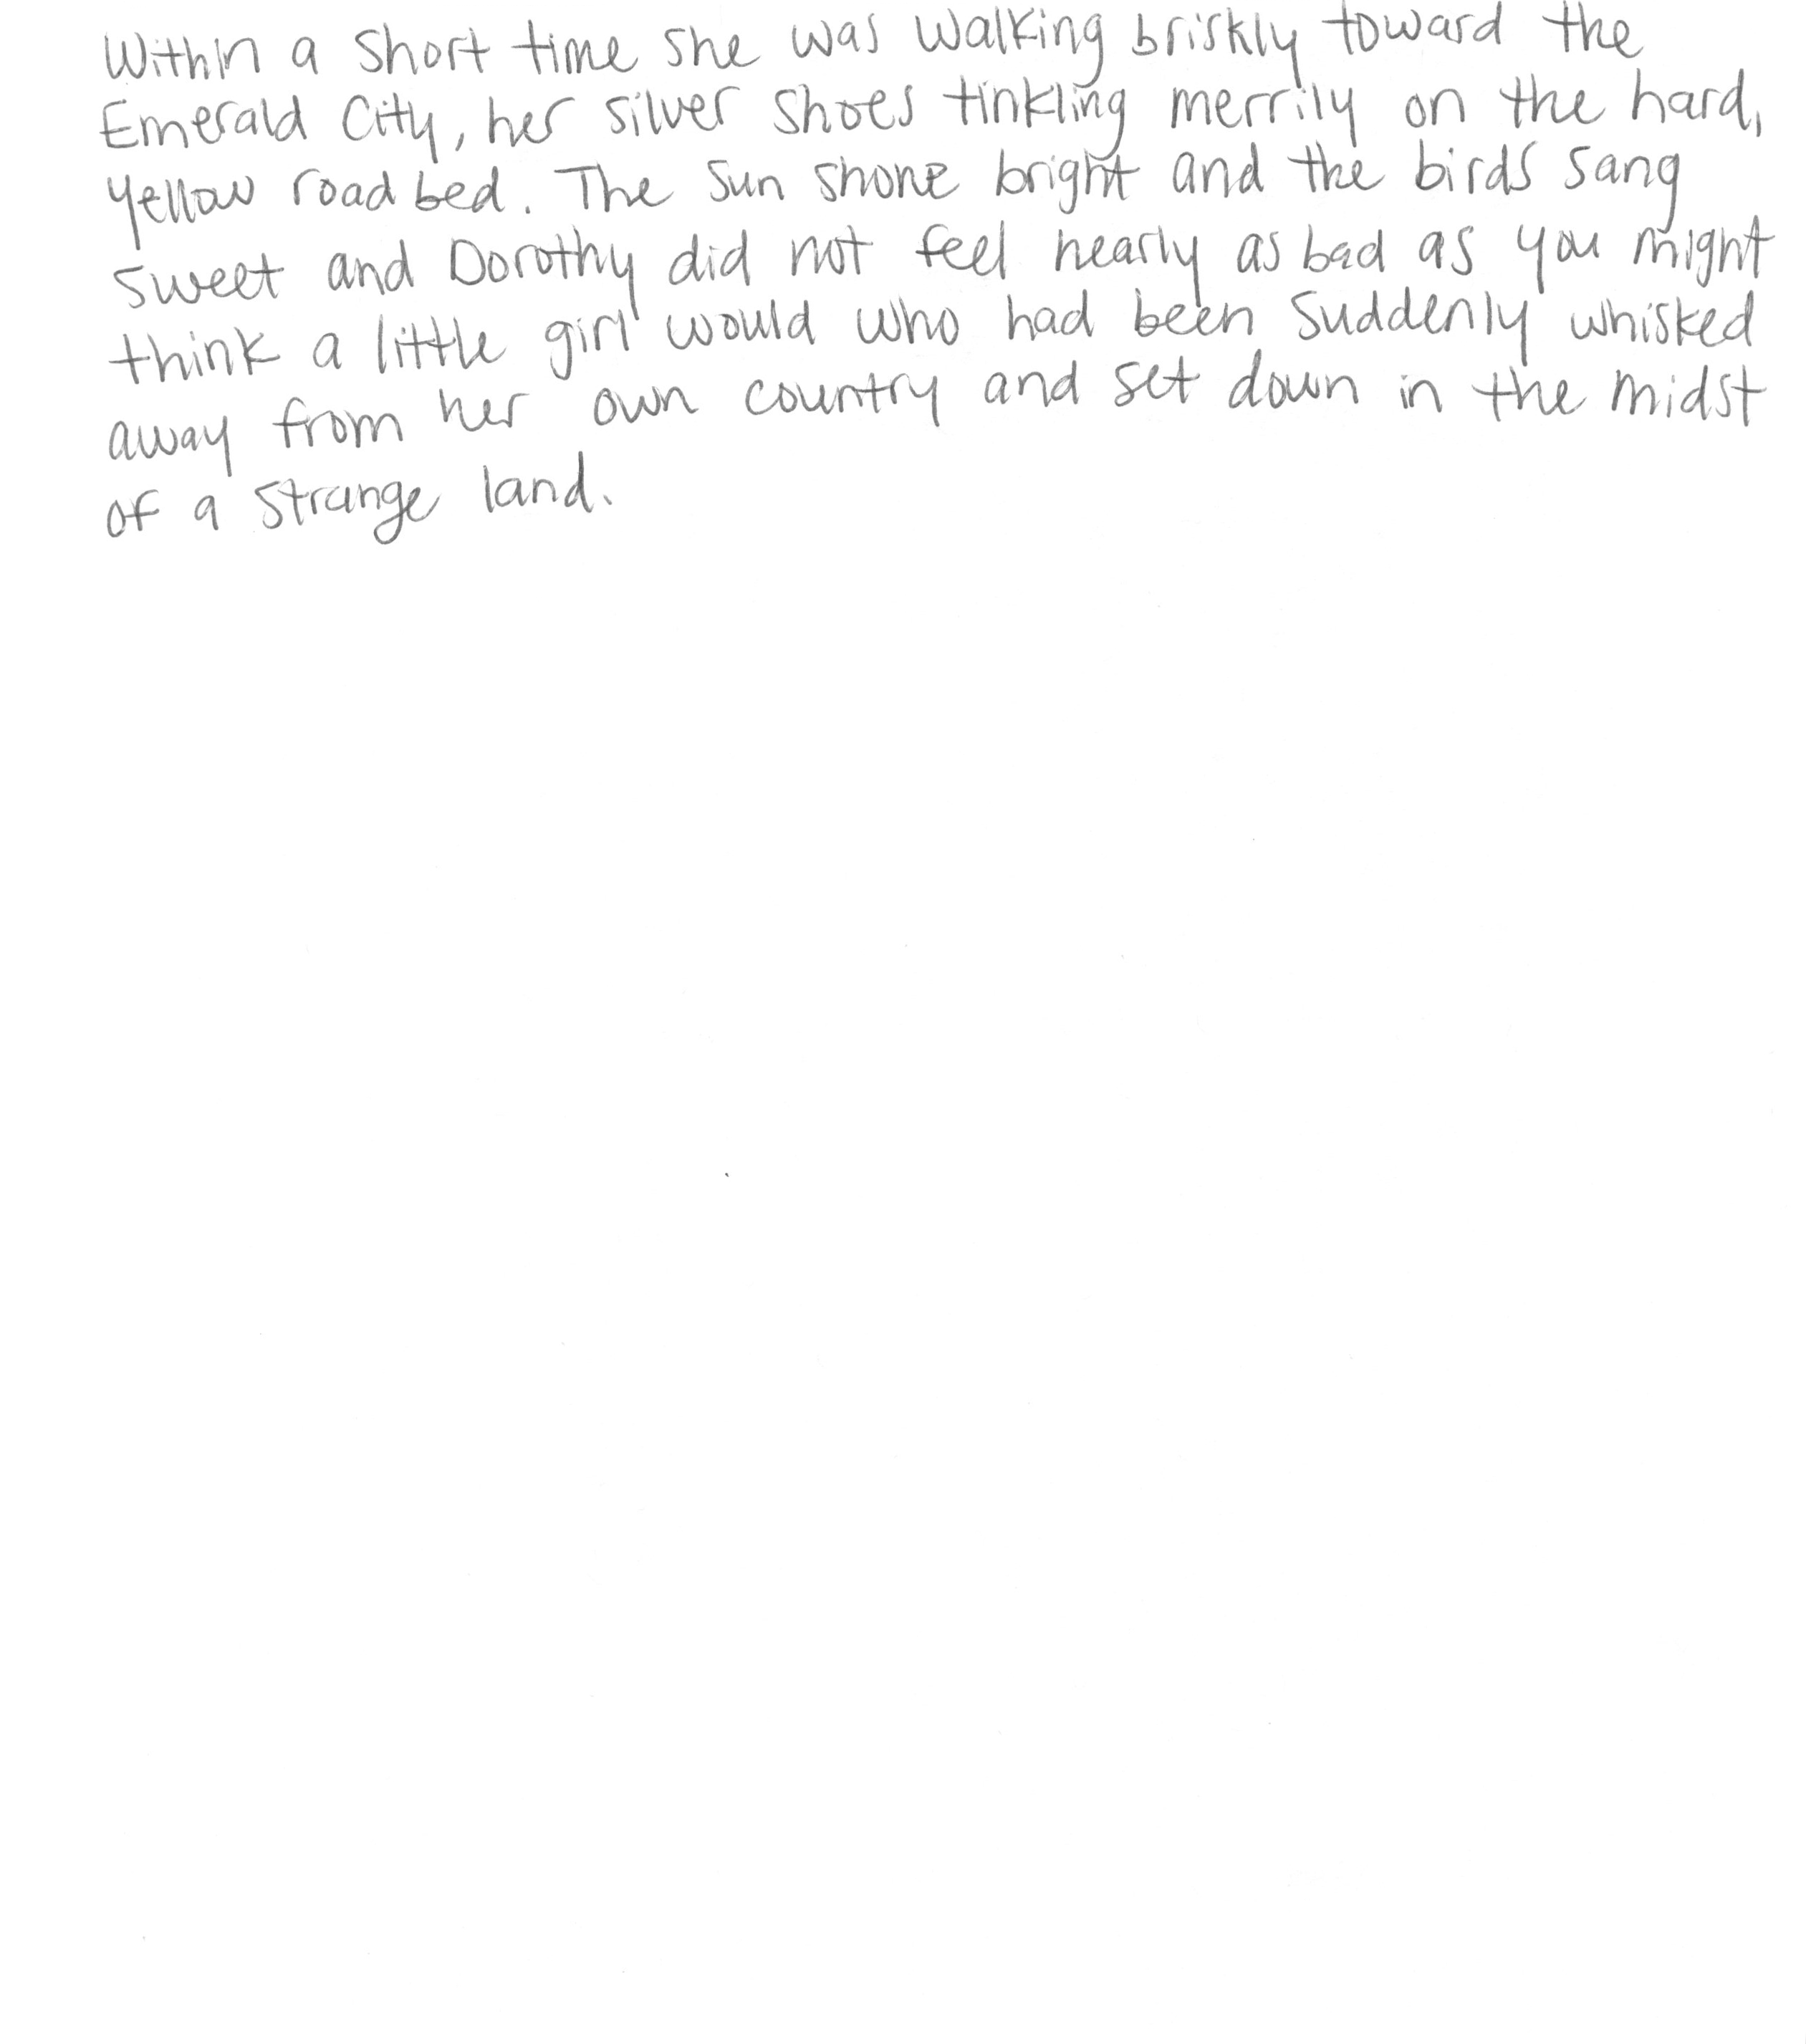 Within a short time she was walking briskly toward the
Emerald City, her silver shoes tinkling merrily on the hard,
yellow road bed. The sun shone bright and the birds sang
sweet and Dorothy did not feel nearly as bad as you might
think a little girl would who had been suddenly whisked
away from her own country and set down in the midst
of a strange land.